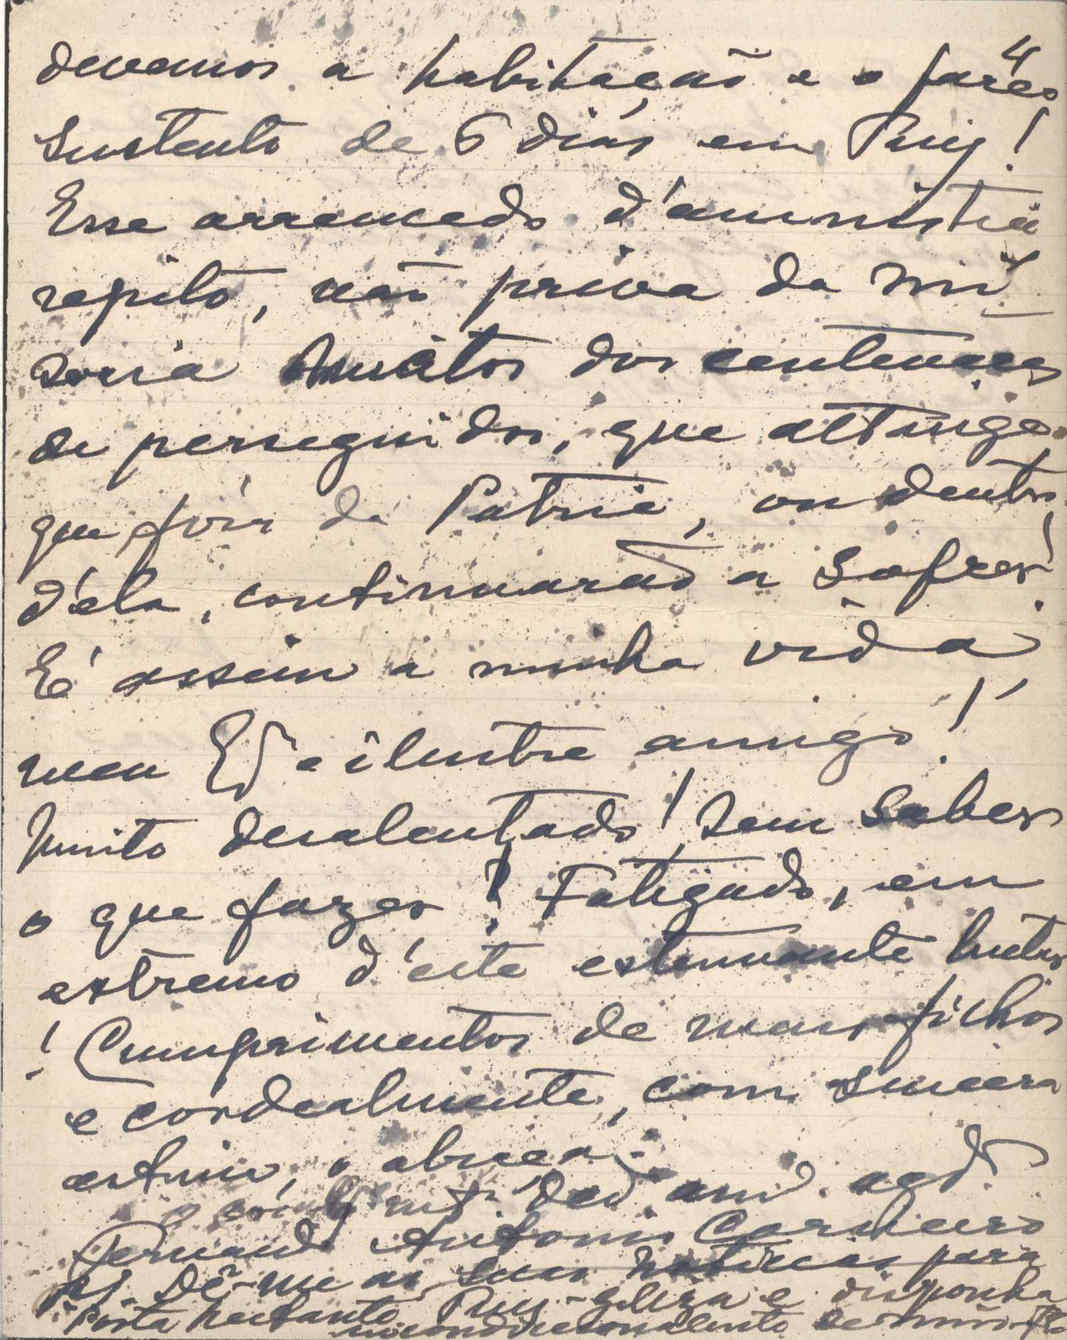 4
devemos a habitação e o
sustento de 6 dias em Tuy!
Esse arremedo d'amnistia
repito, não priva da mi
seria muitos dos centenares
de perseguidos, que attinge.
que fóra da Patria, ou dentro
d'ela, continuarão a sofrer!
E' assim a minha vida,
meu Ex e ilustre amigo!
Muito desalentado! Sem saber
o que fazer! Fatigado, em
extremo d'esta extenuante lucta
! Cumprimentos de meus filhos
e cordealmente, com sincera
estima, o abraça.
o ded. am. agd.
Fernando Antonio Carneiro
Dê-me as suas noticias para
Posta restante Tuy - Galiza e disponha
incondicionalmente